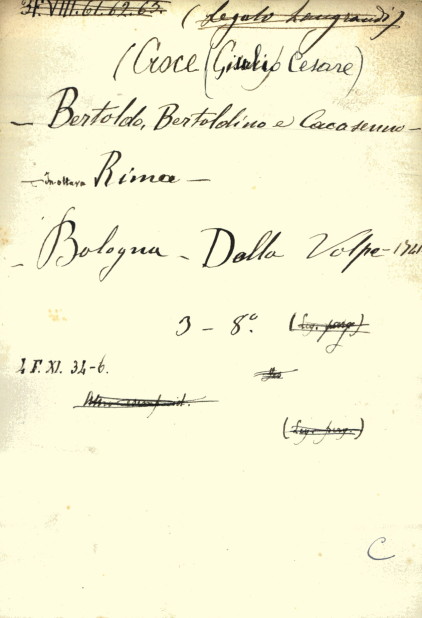 3F.VIII.61.62.63. (Legato Langrandi)
(Croce (Giulio) Cesare)
— Bertoldo, Bertoldino e Cacasenno —
— In ottava Rima —
— Bologna — Dalla Volpe — 1741
3 — 8.° (Leg. perg.)
4 F. XI. 34-6.
(Leg. perg.)
C